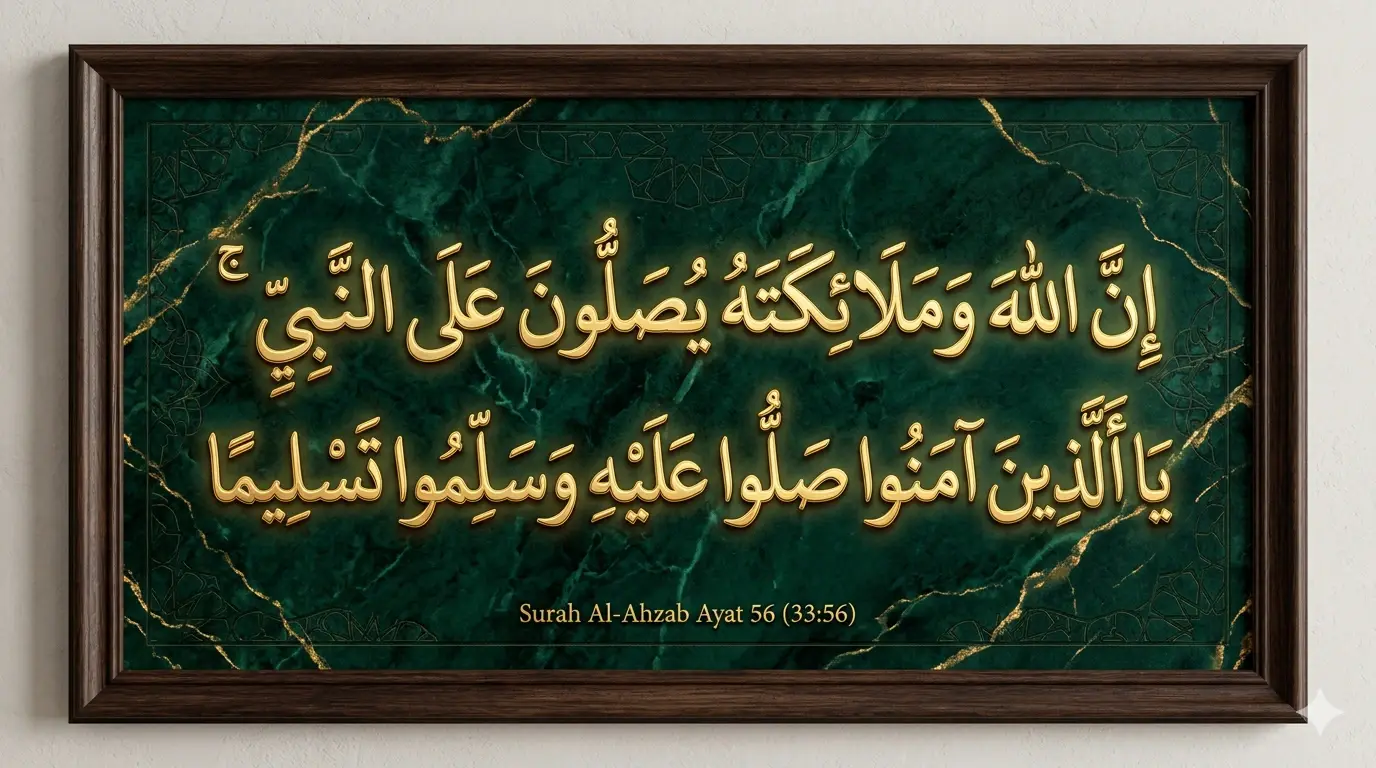 إِنَّ اللَّهَ وَمَلَائِكَتَهُ يُصَلُّونَ عَلَى النَّبِيِّ ۚ
يَا أَلَّذِينَ آمَنُوا صَلُّوا عَلَيْهِ وَسَلِّمُوا تَسْلِيمًا
Surah Al-Ahzab Ayat 56 (33:56)